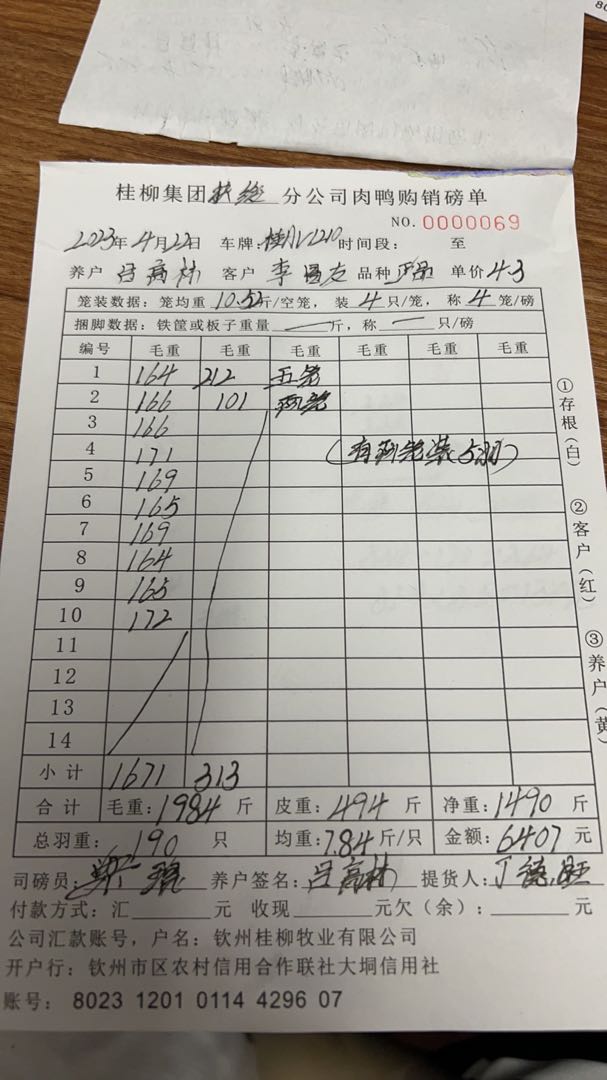 桂柳集团扶绥分公司肉鸭购销磅单
NO. 0000069
2023年4月22日 车牌: 时间段: 至
养户 吕高林 客户 李 友 品种 单价 4.3
笼装数据: 笼均重 10.52斤/空笼, 装 4 只/笼, 称 4 笼/磅
捆脚数据: 铁筐或板子重量 — 斤, 称 — 只/磅
编号 毛重 毛重 毛重 毛重 毛重 毛重
1 164 212 五笼
2 166 101 两笼
3 166
4 171 (有两笼装5羽)
5 169
6 165
7 169
8 164
9 165
10 172
11
12
13
14
小计 1671 313
合计 毛重: 1984 斤 皮重: 494 斤 净重: 1490 斤
总羽重: 190 只 均重: 7.84 斤/只 金额: 6407 元
司磅员: 养户签名: 吕高林 提货人: 丁
付款方式: 汇 元 收现 元欠(余): 元
公司汇款账号, 户名: 钦州桂柳牧业有限公司
开户行: 钦州市区农村信用合作联社大垌信用社
账号: 8023 1201 0114 4296 07
①存根(白)
②客户(红)
③养户(黄)